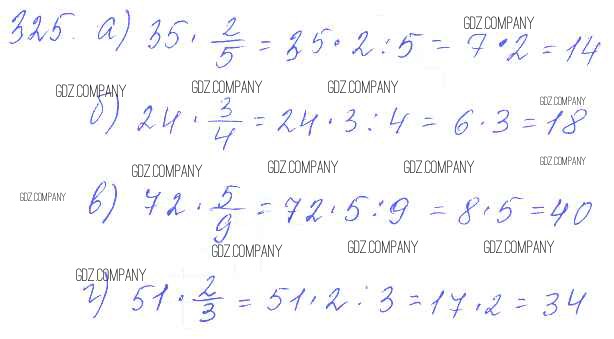 325. а) 35 · 2/5 = 35 · 2 : 5 = 7 · 2 = 14
GDZ.COMPANY
GDZ.COMPANY GDZ.COMPANY GDZ.COMPANY
б) 24 · 3/4 = 24 · 3 : 4 = 6 · 3 = 18
GDZ.COMPANY
GDZ.COMPANY GDZ.COMPANY GDZ.COMPANY GDZ.COMPANY
GDZ.COMPANY
в) 72 · 5/9 = 72 · 5 : 9 = 8 · 5 = 40
GDZ.COMPANY GDZ.COMPANY GDZ.COMPANY
GDZ.COMPANY
г) 51 · 2/3 = 51 · 2 : 3 = 17 · 2 = 34